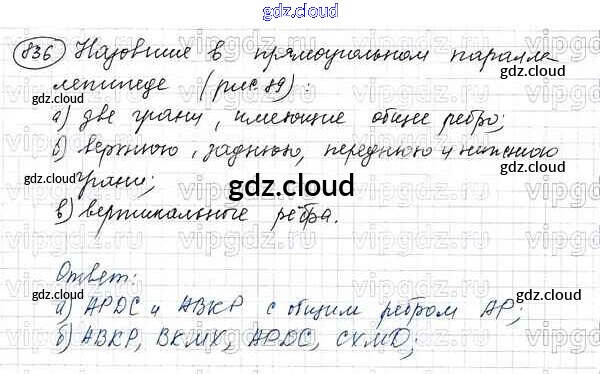 gdz.cloud
836 Назовите в прямоугольном паралле
лепипеде (рис 89):
а) две грани, имеющие общее ребро;
б) верхнюю, заднюю, переднюю и нижнюю
грани;
в) вертикальные рёбра.
Ответ:
а) APDC и ABKP с общим ребром AP;
б) ABKP, BKMY, APDC, CYMD;
gdz.cloud
vipgdz.cloud